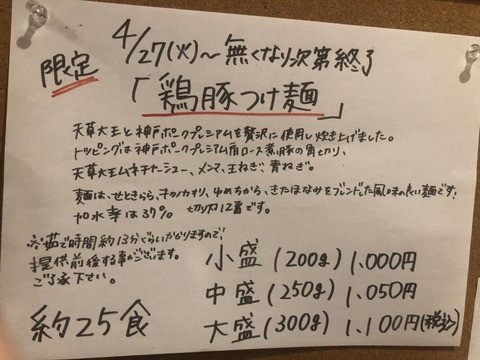 限定
4/27(火)～無くなり次第終了
「鶏豚つけ麺」
天草大王と神戸ポークプレミアムを贅沢に使用し炊き上げました。
トッピングは神戸ポークプレミアム肩ロース煮豚の角切り、
天草大王ムネチャーシュー、メンマ、玉ねぎ、青ねぎ。
麺は、せときらら、キタノカオリ、ゆめちから、きたほなみをブレンドした風味の良い麺です!
加水率は37% 切刃12番です。
※茹で時間約13分ぐらいかかりますので!
提供前後する事がございます。
ご了承下さい。
小盛(200g)1,000円
中盛(250g)1,050円
大盛(300g)1,100円(税込)
約25食